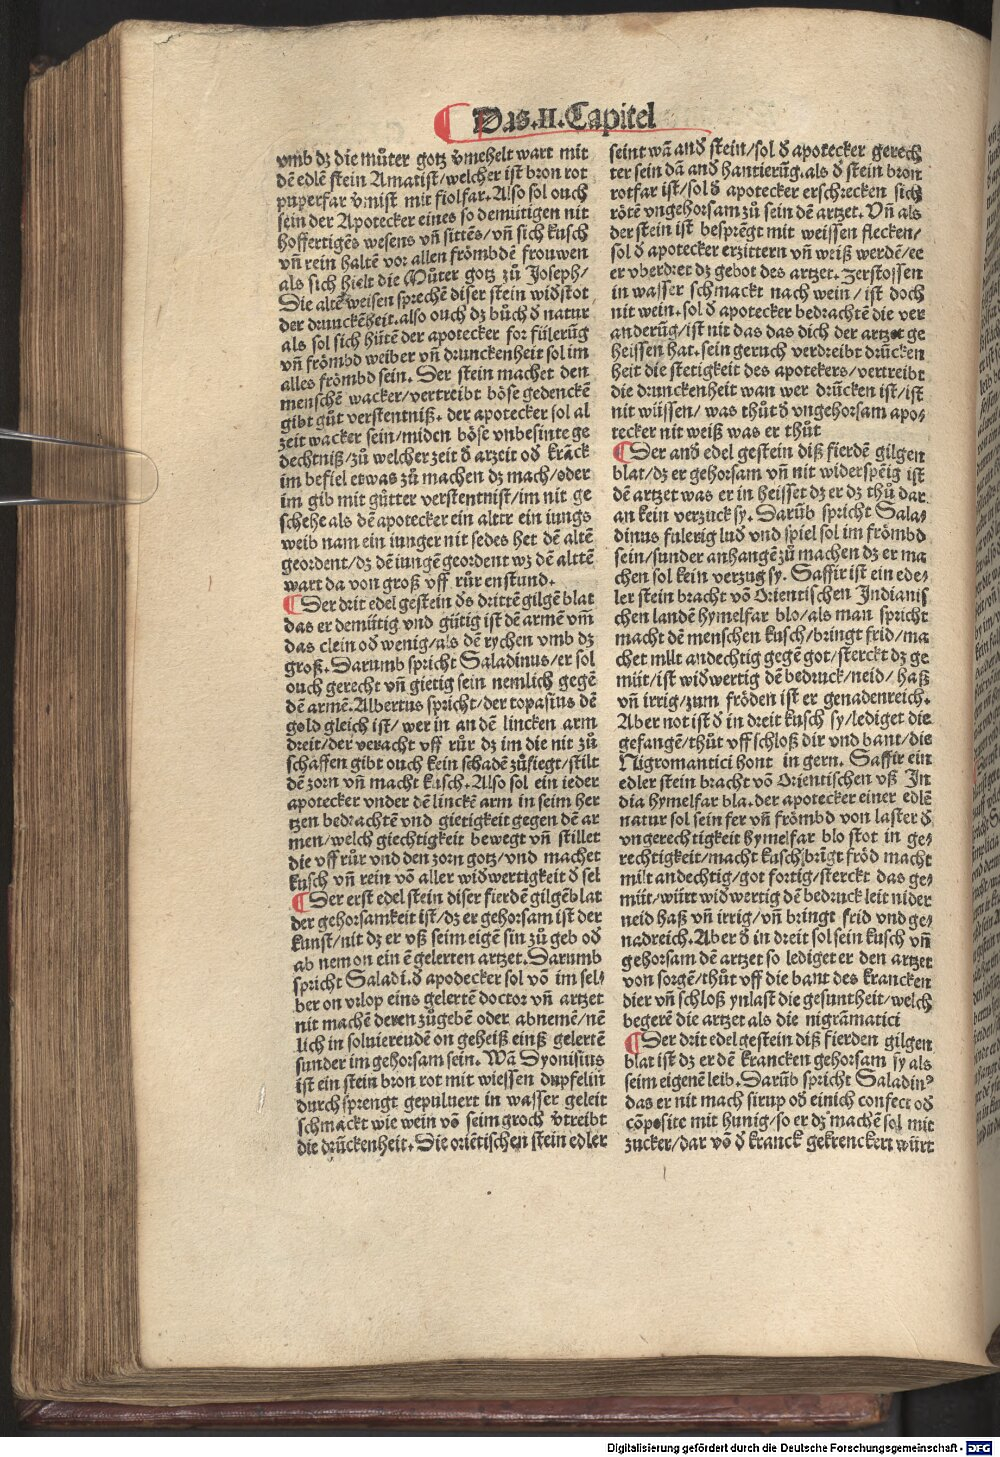 Das .II. Capitel
vmb dz die můter gotz v̄mehelt wart mit
dē edlē stein Amatist/welcher ist bron rot
puperfar v̄mist mit fiolfar. Also sol ouch
sein der Apotecker eines so demütigen nit
hoffertigēs wesens vn̄ sittēs/vn̄ sich kusch
vn̄ rein haltē vor allen frömbdē frouwen
als sich hielt die Můter gotz zů Joseph/
Die altē weisen sprechē diser stein wid̄stot
der drunckēheit. also ouch dz bůch d̄ natur
als sol sich hütē der apotecker for fülerūg
vn̄ frömbd weiber vn̄ drunckenheit sol im
alles frömbd sein. Der stein machet den
menschē wacker/vertreibt böse gedenckē
gibt gůt verstentniß. der apotecker sol al
zeit wacker sein/miden böse vnbesinte ge
dechtniß/zů welcher zeit d̄ artzeit od̄ krāck
im befiel etwas zů machen dz mach/oder
im gib mit gůtter verstentnist/im nit ge
schehe als dē apotecker ein alttr ein iungs
weib nam ein iunger nit sedes het dē altē
geordent/dz dē iungē geordent wz dē alttē
wart da von groß vff růr enstund.
Der drit edel gestein d̄s drittē gilgē blat
das er demütig vnd gütig ist dē armē vm̄
das clein od̄ wenig/als dē rychen vmb dz
groß. Darumb spricht Saladinus/er sol
ouch gerecht vn̄ gietig sein nemlich gegē
dē armē. Albertus spricht/der topasius dē
gold gleich ist/wer in an dē lincken arm
dreit/der veracht vff růr dz im die nit zů
schaffen gibt ouch kein schadē zůfiegt/stilt
dē zorn vn̄ macht kusch. Also sol ein ieder
apotecker vnder dē linckē arm in seim her
tzen bedrachtē vnd gietigkeit gegen dē ar
men/welch giechtigkeit bewegt vn̄ stillet
die vff růr vnd den zorn gotz/vnd machet
kusch vn̄ rein vō aller wid̄wertigkeit d̄ sel
Der erst edel stein diser fierdē gilgēblat
der gehorsamkeit ist/dz er gehorsam ist der
kunst/nit dz er vß seim eigē sin zů geb od̄
ab nem on ein ē gelerten artzet. Darumb
spricht Saladi. d̄ apodecker sol vō im sel-
ber on vrlop eins gelertē doctor vn̄ artzet
nit machē deren zůgebē oder abnemē/nē
lich in soluierendē on geheiß einß gelertē
sunder im gehorsam sein. Wā Dyonisius
ist ein stein bron rot mit wiessen dupfelin
durch sprengt gepuluert in wasser geleit
schmackt wie wein vō seim groch v̄treibt
die drūckenheit. Die oriētischen stein edler
seint wā and̄ stein/sol d̄ apotecker gerech
ter sein dā and̄ hantierūg. als d̄ stein bron
rotfar ist/sol d̄ apotecker erschrecken sich
rötē vngehorsam zů sein dē artzet. Vn̄ als
der stein ist besprēgt mit weissen flecken/
sol d̄ apotecker erzittern vn̄ weiß werdē/ee
er vberdret dz gebot des artzet. Zerstossen
in wasser schmackt nach wein/ist doch
nit wein. sol d̄ apotecker bedrachtē die ver
anderūg/ist nit das das dich der artzet ge
heissen hat. sein geruch verdreibt drūcken
heit die stetigkeit des apotekers/vertreibt
die drunckenheit wan wer drūcken ist/ist
nit wüssen/was thůt d̄ vngehorsam apo-
tecker nit weiß was er thůt
Der and̄ edel gestein diß fierdē gilgen
blat/dz er gehorsam vn̄ nit widerspēig ist
dē artzet was er in heisset dz er dz thů dar
an kein verzuck sy. Darūb spricht Sala-
dinus fulerig lud̄ vnd spiel sol im frömbd
sein/sunder anhangē zů machen dz er ma
chen sol kein verzug sy. Saffir ist ein ede-
ler stein bracht vō Orientischen Indianis
chen landē hymelfar blo/als man spricht
macht dē menschen kusch/bringt frid/ma
chet milt andechtig gegē got/sterckt dz ge
müt/ist wid̄wertig dē bedruck/neid/haß
vn̄ irrig/zum fröden ist er genadenreich.
Aber not ist d̄ in dreit kusch sy/lediget die
gefangē/thůt vff schloß dir vnd bant/die
Nigromantici hont in gern. Saffir ein
edler stein bracht vō Orientischen vß In
dia hymelfar bla. der apotecker einer edlē
natur sol sein fer vn̄ frömbd von laster d̄
vngerechtigkeit hymelfar blo stot in ge-
rechtigkeit/macht kusch brīgt fröd macht
milt andechtig/got fortig/sterckt das ge-
müt/würt wid̄wertig dē bedruck leit nider
neid haß vn̄ irrig/vn̄ bringt frid vnd ge-
nadreich. Aber d̄ in dreit sol sein kusch vn̄
gehorsam dē artzet so lediget er den artzet
von sorgē/thůt vff die bant des krancken
dier vn̄ schloß ynlast die gesuntheit/welch
begerē die artzet als die nigrāmatici
Der drit edel gestein diß fierden gilgen
blat ist dz er dē krancken gehorsam sy als
seim eigenē leib. Darūb spricht Saladinꝰ
das er nit mach sirup od̄ einich confect od̄
cōposite mit hunig/so er dz machē sol mit
zucker/dar vō d̄ kranck gekrenckert würt
Digitalisierung gefördert durch die Deutsche Forschungsgemeinschaft - DFG